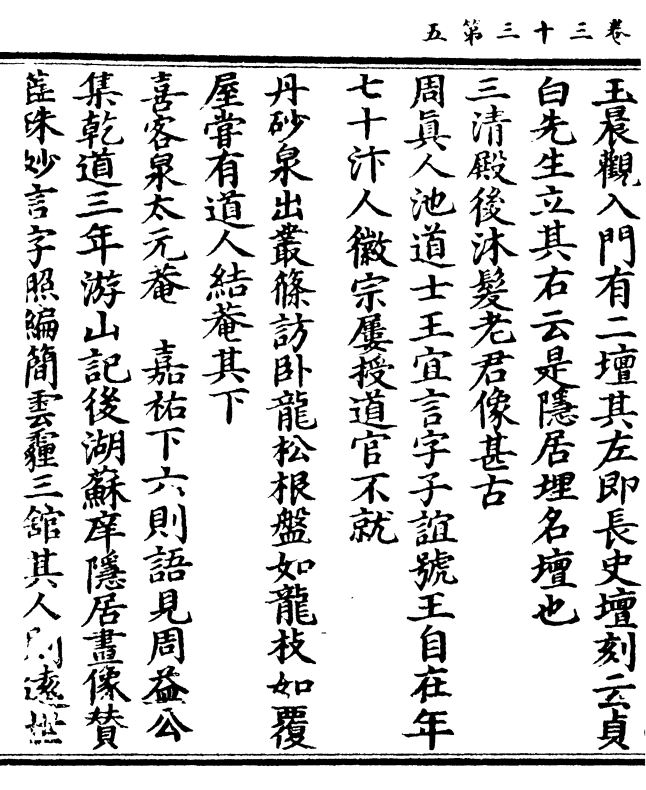 卷三十三第五
玉晨觀入門有二壇其左即長史壇刻云貞
白先生立其右云是隱居埋名壇也
三清殿後沐髮老君像甚古
周眞人池道士王宜言字子誼號王自在年
七十汴人徽宗屢授道官不就
丹砂泉出叢篠訪卧龍松根盤如龍枝如覆
屋嘗有道人結菴其下
喜客泉太元菴 嘉祐下六則語見周益公
集乾道三年游山記後湖蘇庠隱居畫像贊
蘂珠妙言字照編簡雲龕三舘其人則遠世